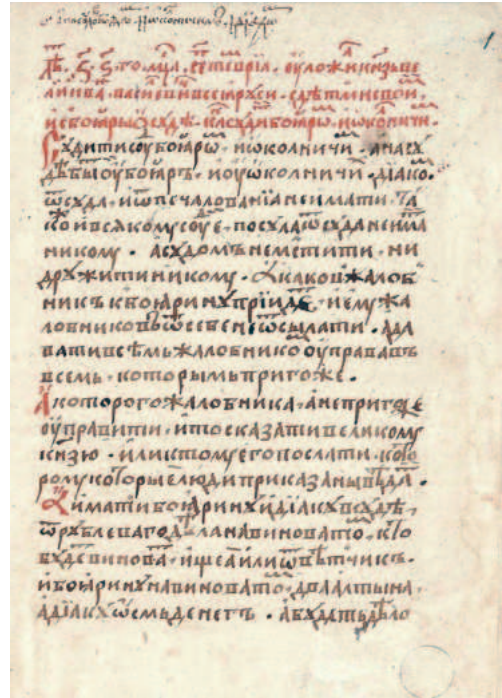 лѣ ҂з҃ ѕ҃ го мца септевріа оуложи кнзь ве
ликіи ива васильеви всеа руси с дѣтми своими
и с боѧры ѡ судѣ какъ судити боѧро и ѡколничи
Судити су боѧро и ѡколничи а на су
дѣ быти оу боѧръ и оу ѡколничи діако
ѿ суда и ѿ печалованіа не имати та
ко и всѧкому судіе посула ѿ суда не има
никому а судомъ не мстити ни
дружити никому а каков жалоб
никъ к боѧрину пріиде и ему жа
лобниковъ ѿ себе не ѿсылати а да
вати всѣмъ жалобнико оуправа въ
всемь которымь пригоже
А которого жалобника а не пригоже
оуправити и то сказати великому
кнзю или к тому его послати кото
рому которые люди приказаны вѣда
А имати боѧрину и діаку в судѣ
ѿ рублеваго дѣла на виновато кто
буде винова ищеа или ѿвѣтчикъ
и боѧрину на виновато два алтына
а діаку ѡсмь денегъ а буде дѣло